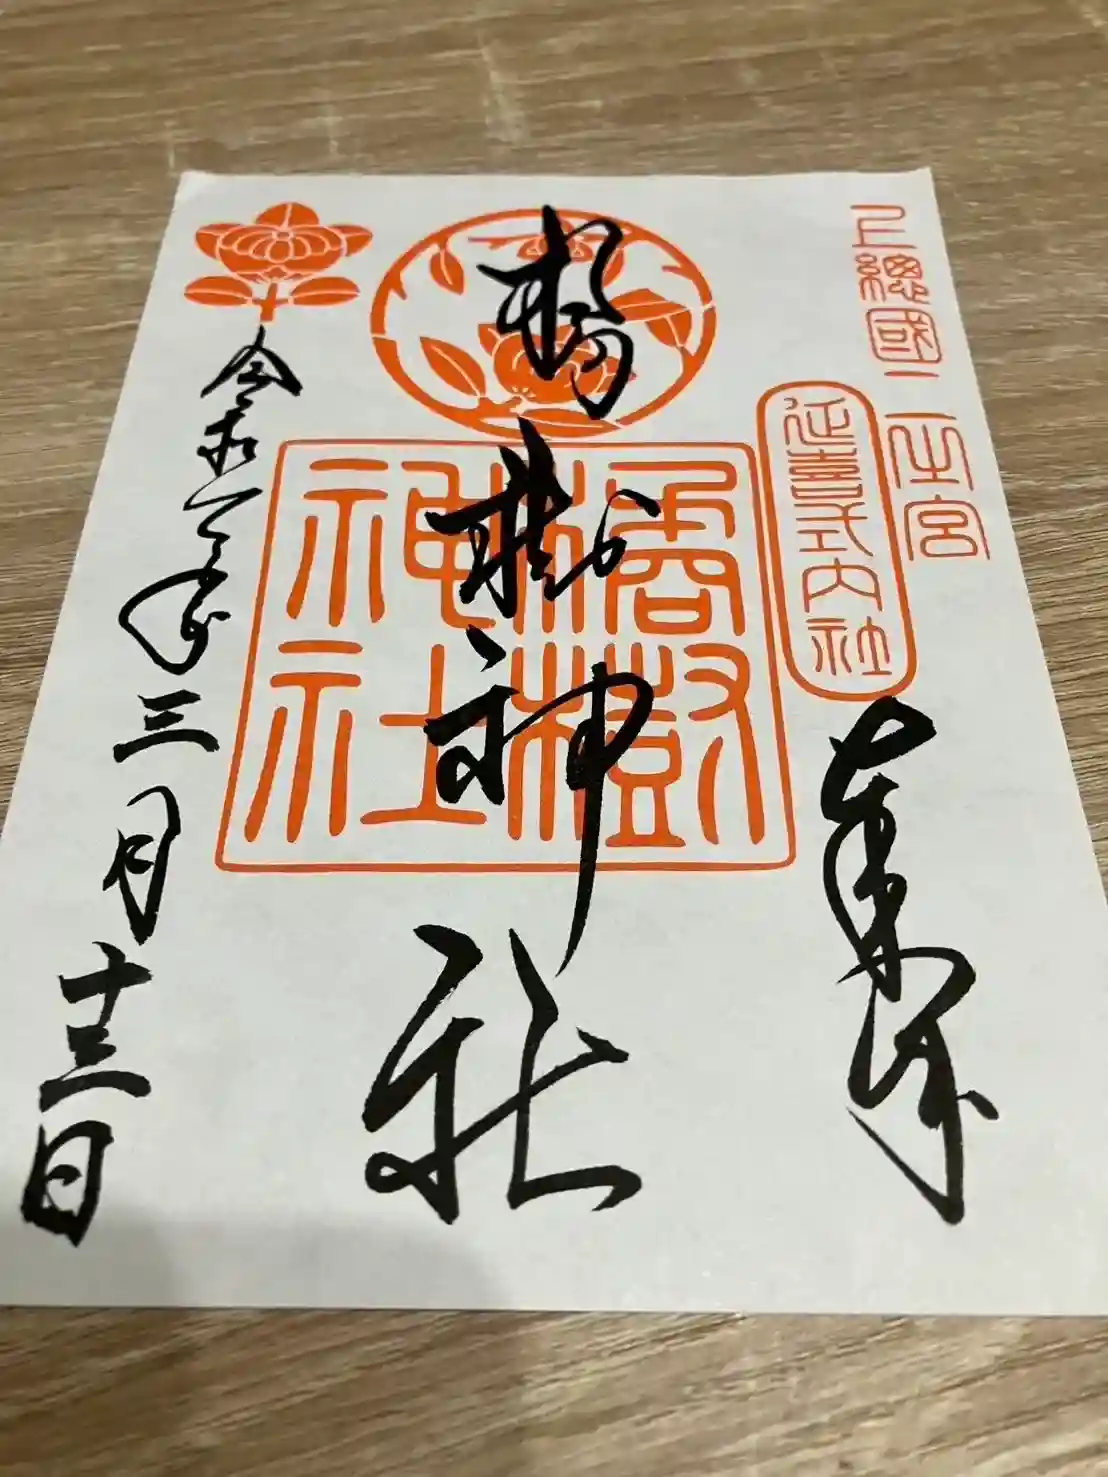 上總國二之宮
延喜式内社
奉拝
橘樹神社
橘樹神社
令和 年三月十三日